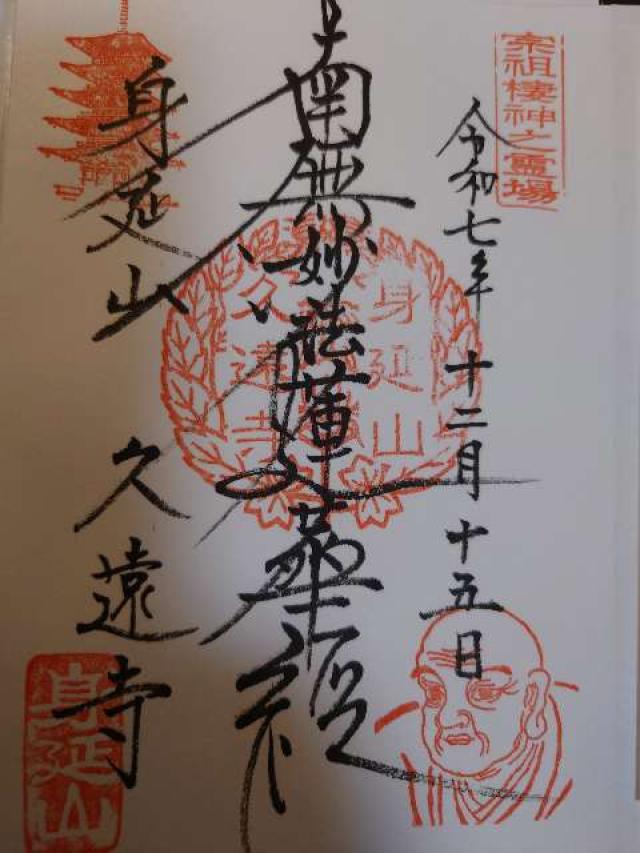 宗祖棲神之霊場
令和七年十二月十五日
南無妙法蓮華経
身延山
久遠寺
身延山
久遠寺
身延山